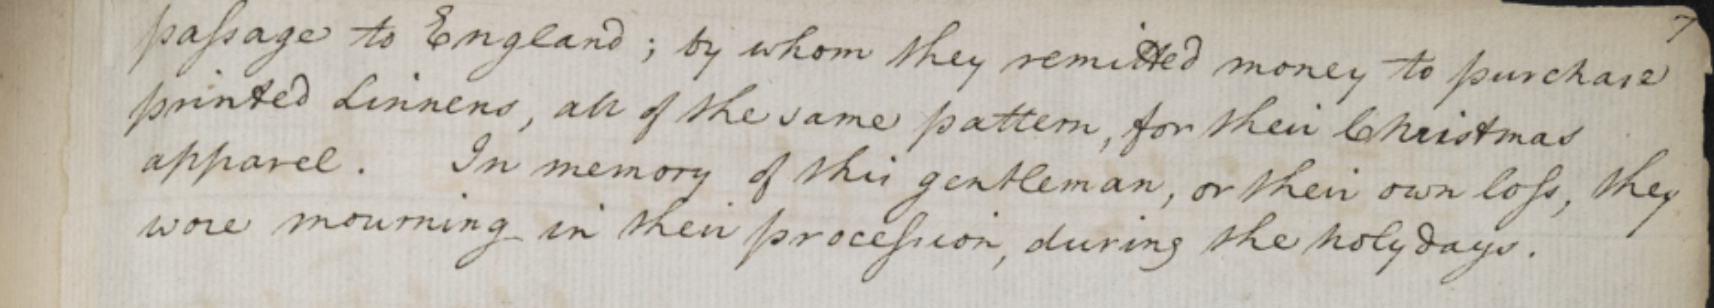 7
paſsage to England; by whom they remitted money to purchase
printed Linnens, all of the same pattern, for their Christmas
apparel. In memory of this gentleman, or their own loſs, they
wore mourning in their proceſsion, during the holydays.